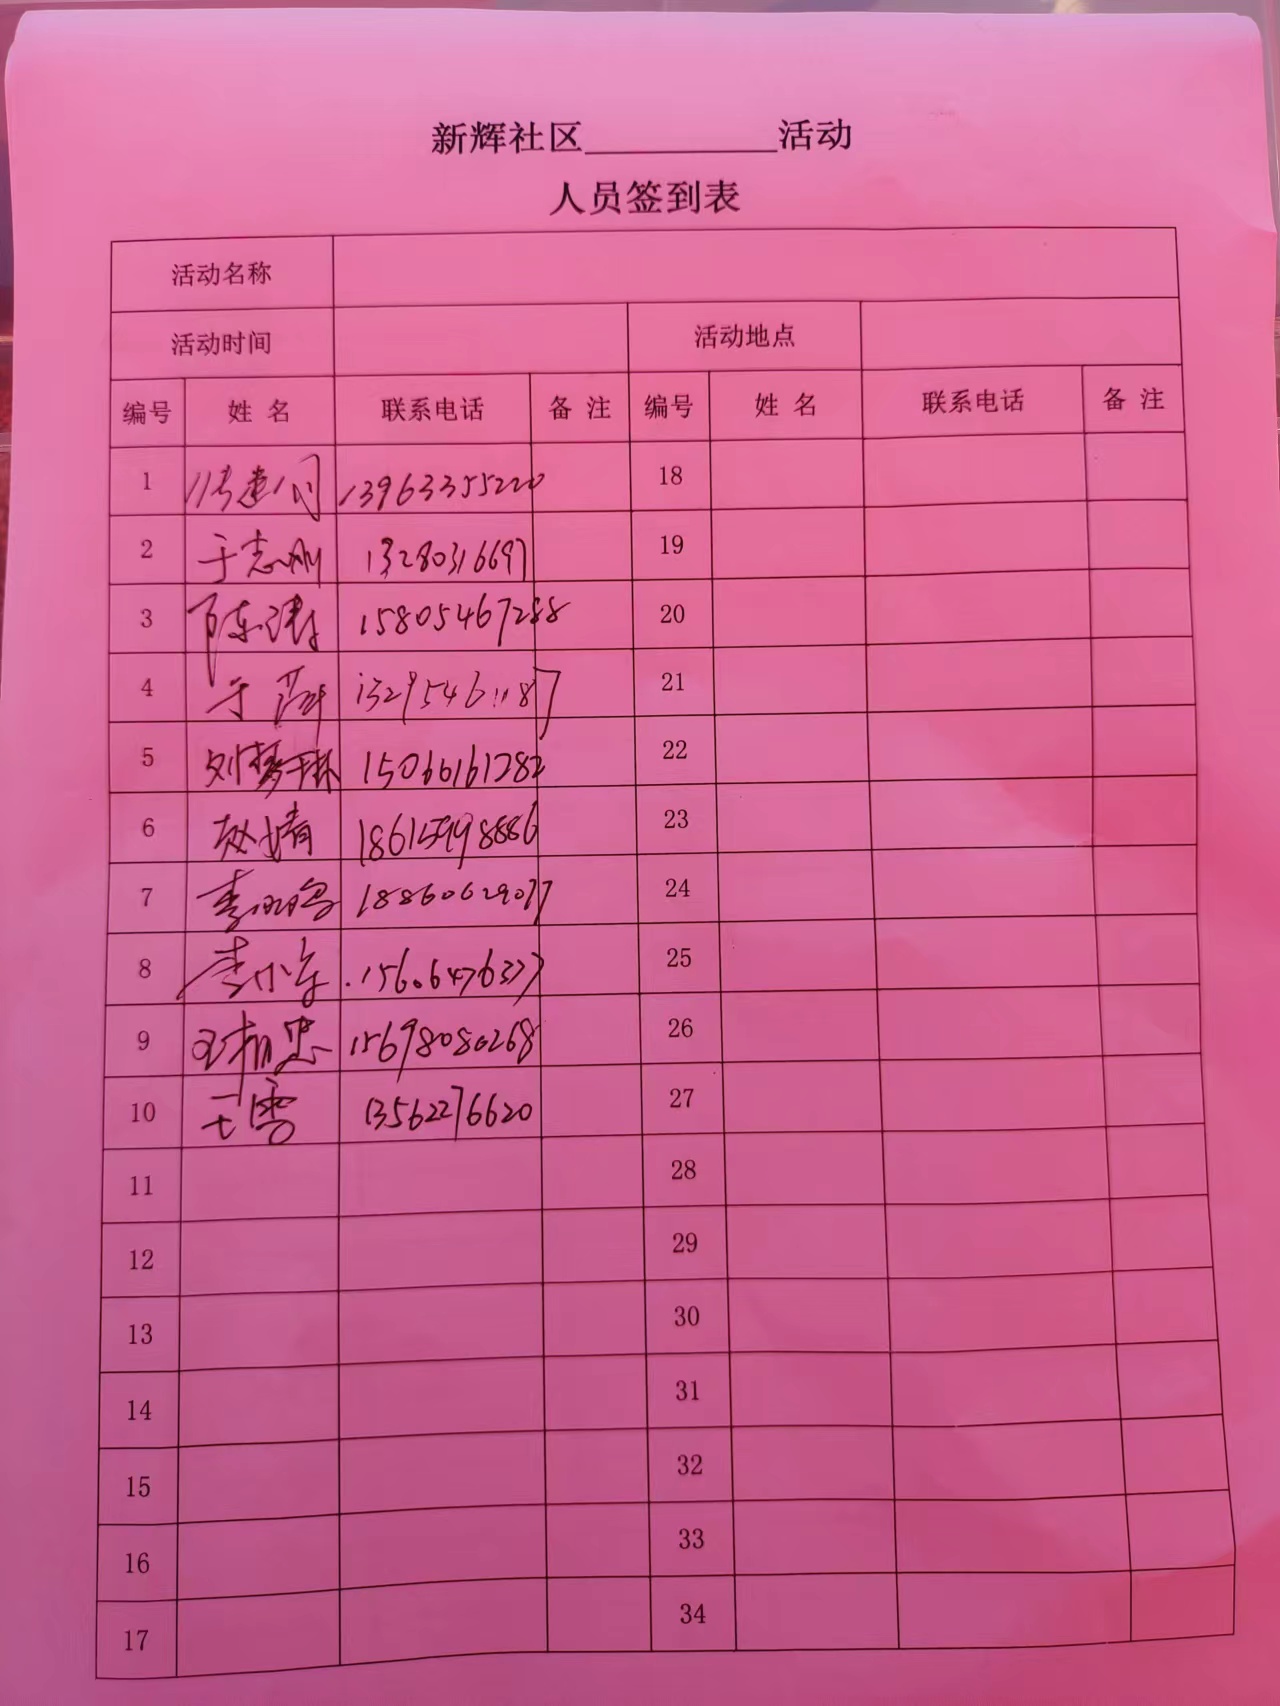 新辉社区__________活动
人员签到表
活动名称
活动时间 活动地点
编号 姓 名 联系电话 备 注 编号 姓 名 联系电话 备 注
1 13963355220 18
2 于志刚 13280316697 19
3 陈涛 15805467288 20
4 于萍 13295461187 21
5 刘梦琳 15066161782 22
6 赵婧 18615998886 23
7 18860629077 24
8 李小军 15606476377 25
9 15698080268 26
10 王雪 13562276620 27
11 28
12 29
13 30
14 31
15 32
16 33
17 34